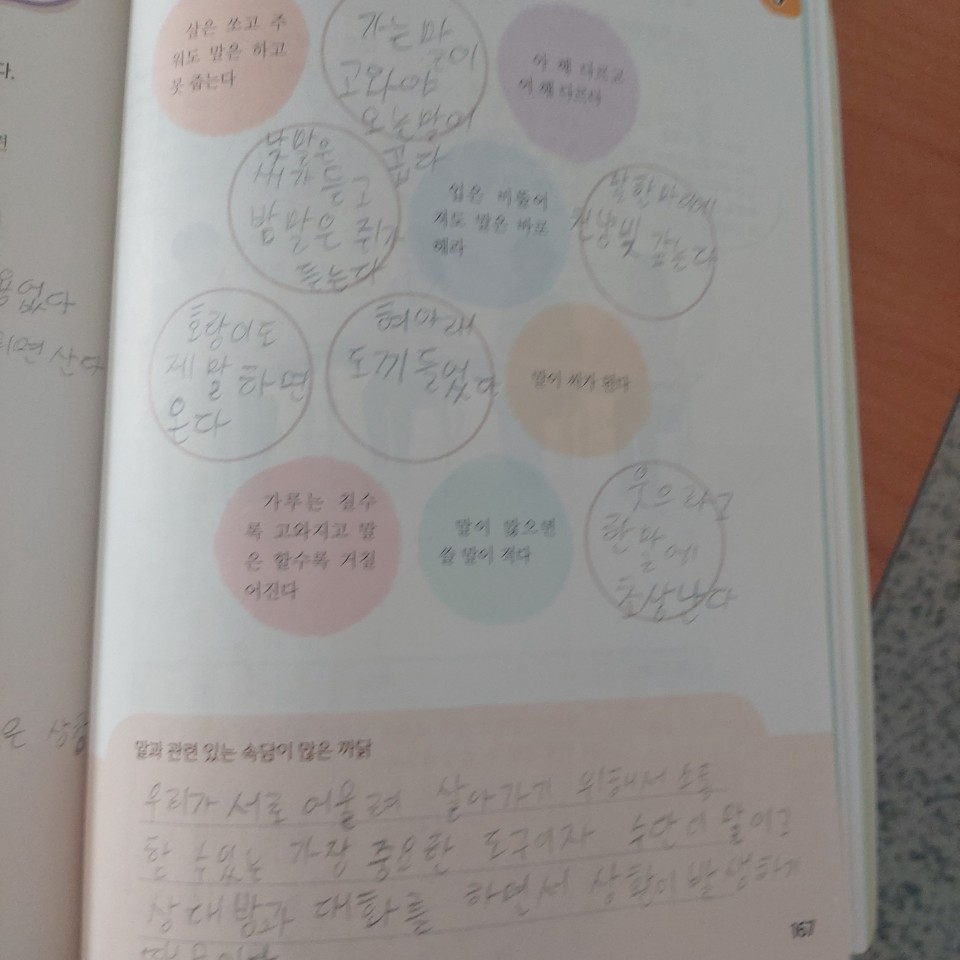 살은 쏘고 주
워도 말은 하고
못 줍는다
가는 말
이
고와야
오는 말이
곱다
아 해 다르고
어 해 다르다
낮말은
새가 듣고
밤말은 쥐가
듣는다
입은 비뚤어
져도 말은 바로
해라
말 한마디에
천냥빚 갚는다
호랑이도
제 말 하면
온다
혀 아래
도끼 들었다
말이 씨가 된다
가루는 칠수
록 고와지고 말
은 할수록 거칠
어진다
말이 많으면
쓸 말이 적다
웃으라고
한 말
에
초상난다
용없다
되면 산다
은 상황
말과 관련 있는 속담이 많은 까닭
우리가 서로 어울려 살아가기 위해서 소통
할 수 있는 가장 중요한 도구이자 수단이 말이고
상대방과 대화를 하면서 상황이 발생하기
때문이다
167